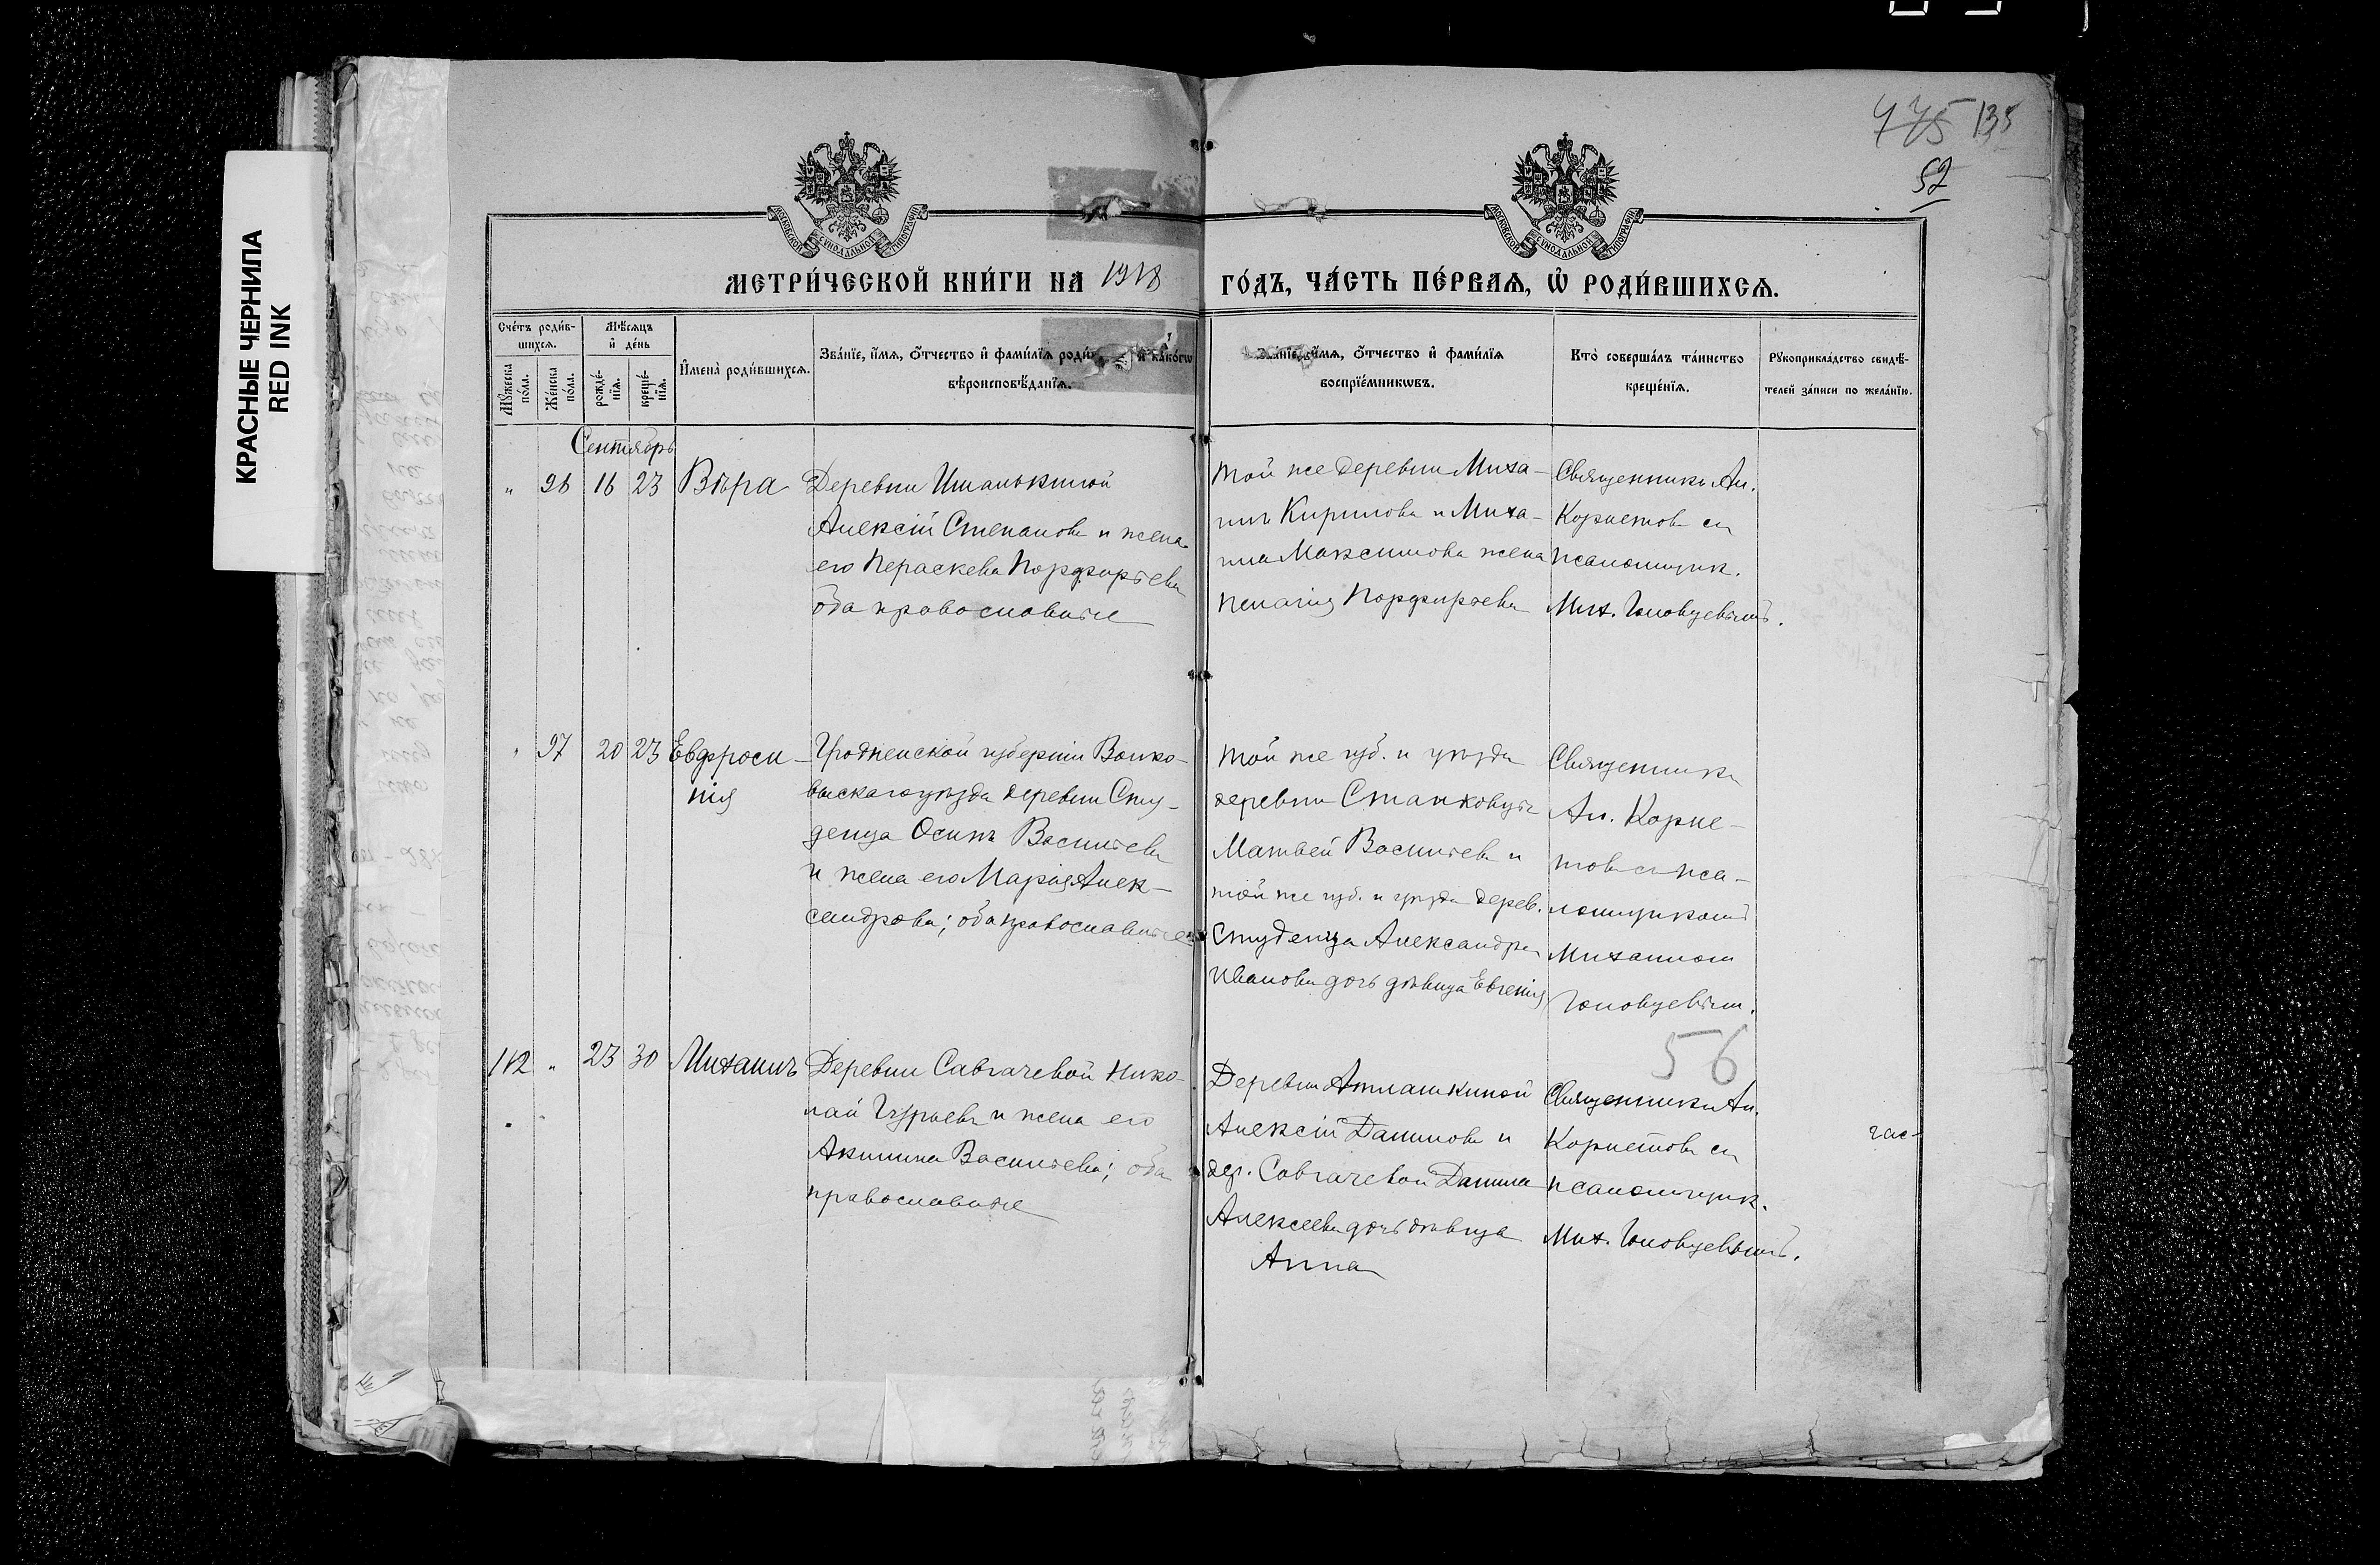 КРАСНЫЕ ЧЕРНИЛА
RED INK
135
52
МОСКОВСКОЙ СѴНОДАЛЬНОЙ ТИПОГРАФІИ
МОСКОВСКОЙ СѴНОДАЛЬНОЙ ТИПОГРАФІИ
МЕТРИ́ЧЕСКОЙ КНИ́ГИ НА 1918 ГО́ДЪ, ЧА́СТЬ ПЕ́РВАЯ, Ѡ҆ РОДИ́ВШИХСЯ.
Сче́тъ роди́в-
шихся.
Мѣ́сяцъ
и҆ де́нь
Мꙋ́жеска
по́ла.
Же́нска
по́ла.
рожде́-
нїя.
креще́-
нїя.
И҆мена̀ роди́вшихся.
Зва́нїе, и҆́мя, ѻ҆́тчество и҆ фами́лїя роди и҆ како́гѡ
вѣроисповѣ́данїя.
Зва́нїе, и҆́мя, ѻ҆́тчество и҆ фами́лїя
воспрїе́мникѡвъ.
Кто̀ соверша́лъ та́инство
креще́нїя.
Рꙋкоприкла́дство свидѣ́-
телей за́писи по жела́нїю.
Сентябрь
" 96 16 23 Вѣра
Деревни Ишалькиной
Алексій Степановъ и жена
его Параскева Порфирьева
оба православные
Той же деревни Миха-
илъ Кириловъ и Миха-
ила Максимова жена
Пелагія Порфирьева
Священникъ Ал.
Корнетовъ съ
псаломщик.
Мих. Головцевымъ.
" 97 20 23 Евфроси-
нія
Гродненской губерніи Волко-
выскаго уѣзда деревни Сту-
денца Осипъ Васильевъ
и жена его Марія Алек-
сандрова; оба православные
Той же губ. и уѣзда
деревни Станковцы
Матвей Васильевъ и
той же губ. и уѣзда дерев.
Студенца Александра
Иванова дочь дѣвица Евгенія
Священникъ
Ал. Корне-
товъ съ пса-
ломщикомъ
Михаилом
Головцевым.
56
112 " 23 30 Михаилъ
Деревни Савгачевой Нико-
лай Гурьевъ и жена его
Акилина Васильева; оба
православные
Деревни Атлашкиной
Алексій Даниловъ и
дер. Савгачевой Данила
Алексеева дочь дѣвица
Анна
Священникъ Ал.
Корнетовъ съ
псаломщик.
Мих. Головцевымъ.
час-